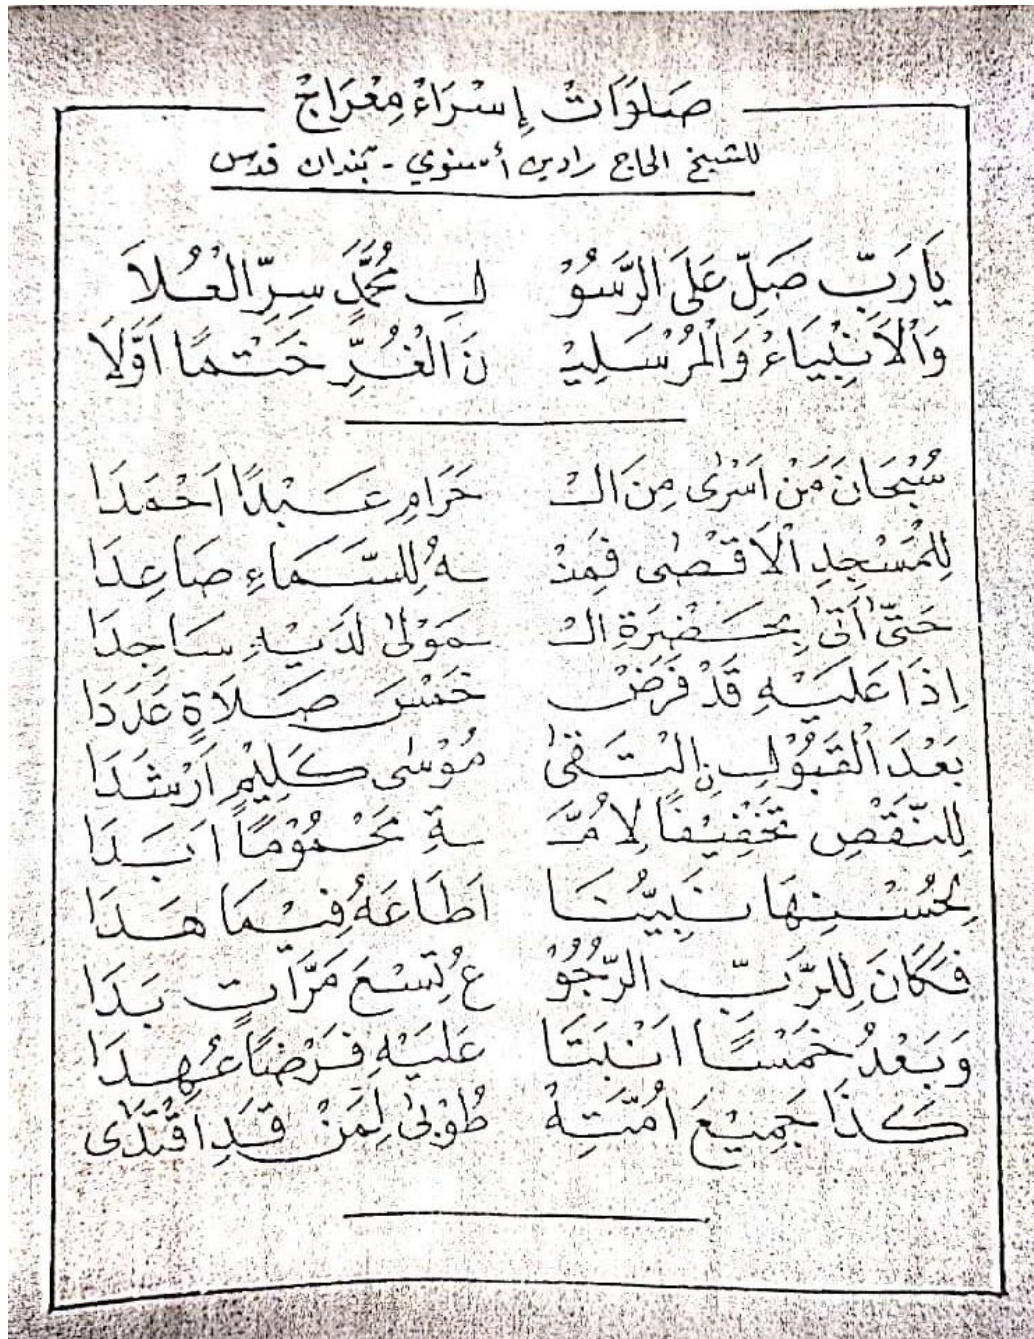 صَلَوَاتْ إِسْرَاءْ مِعْرَاجْ
للشيخ الحاج رادين أسنوي - بندان قدس
يَارَبِّ صَلِّ عَلَى الرَّسُوْ لِ مُحَمَّدَ سِرِّ الْعُلَا
وَالْاَنْبِيَاءْ وَالْمُرْسَلِيْـ نَ الْغُرِّ خَتْمًا اَوَّلَا
سُبْحَانَ مَنْ اَسْرٰى مِنَ الْـ حَرَامِ عَبْدًا اَحْمَدَا
لِلْمَسْجِدِ الْاَقْصٰى فَمِنْـ ـهُ لِلسَّمَاءِ صَاعِدَا
حَتّٰى اَتٰى بِحَضْرَةِ الْـ ـمَوْلٰى لَدَيْهِ سَاجِدَا
اِذَا عَلَيْهِ قَدْ فَرَضْ خَمْسَ صَلَاةٍ عَدَدَا
بَعْدَ الْقَبُوْلِ اِلْتَقٰى مُوْسٰى كَلِيْمٍ اَرْشَدَا
لِلنَّقْصِ تَخْفِيْفًا لِاُمَّـ ـةِ مَحْمُوْمًا اَبَدَا
لِحُسْنِهَا نَبِيُّنَا اَطَاعَهُ فِيْمَا هَدَا
فَكَانَ لِلرَّبِّ الرُّجُوْ عُ تِسْعَ مَرَّاتٍ بَدَا
وَبَعْدُ خَمْسًا اَثْبَتَا عَلَيْهِ فَرْضًا عُهِدَا
كَذَا جَمِيْعَ اُمَّتِهْ طُوْبٰى لِمَنْ قَدِ اقْتَدٰى